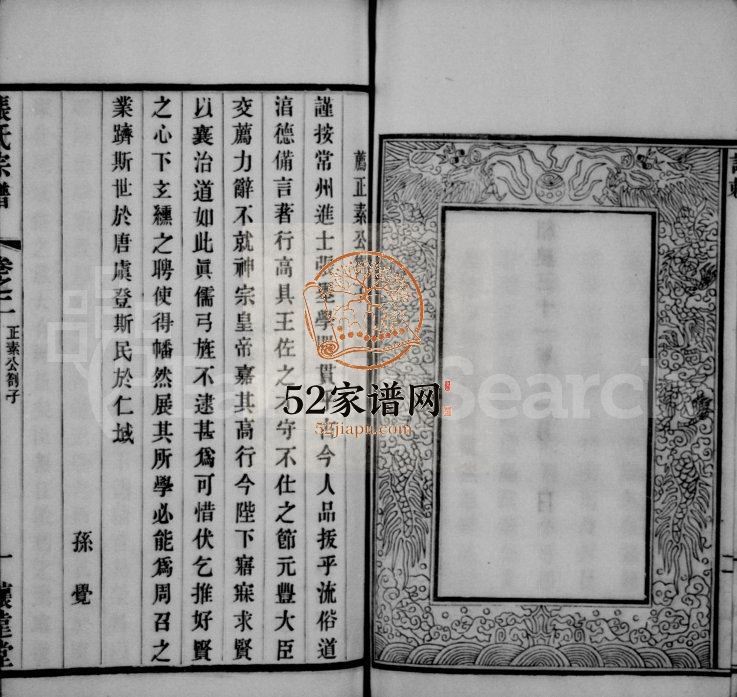 薦正素公
謹按常州進士張 學 貫 今人品拔乎流俗道
滀德備言著行高具王佐之才守不仕之節元豐大臣
交薦力辭不就神宗皇帝嘉其高行今陛下寤寐求賢
以襄治道如此眞儒弓旌不逮甚爲可惜伏乞推好賢
之心下玄纁之聘使得幡然展其所學必能爲周召之
業躋斯世於唐虞登斯民於仁域
孫覺
張氏宗譜
卷之二
正素公劄子
一
52家谱网
52jiapu.com
Search